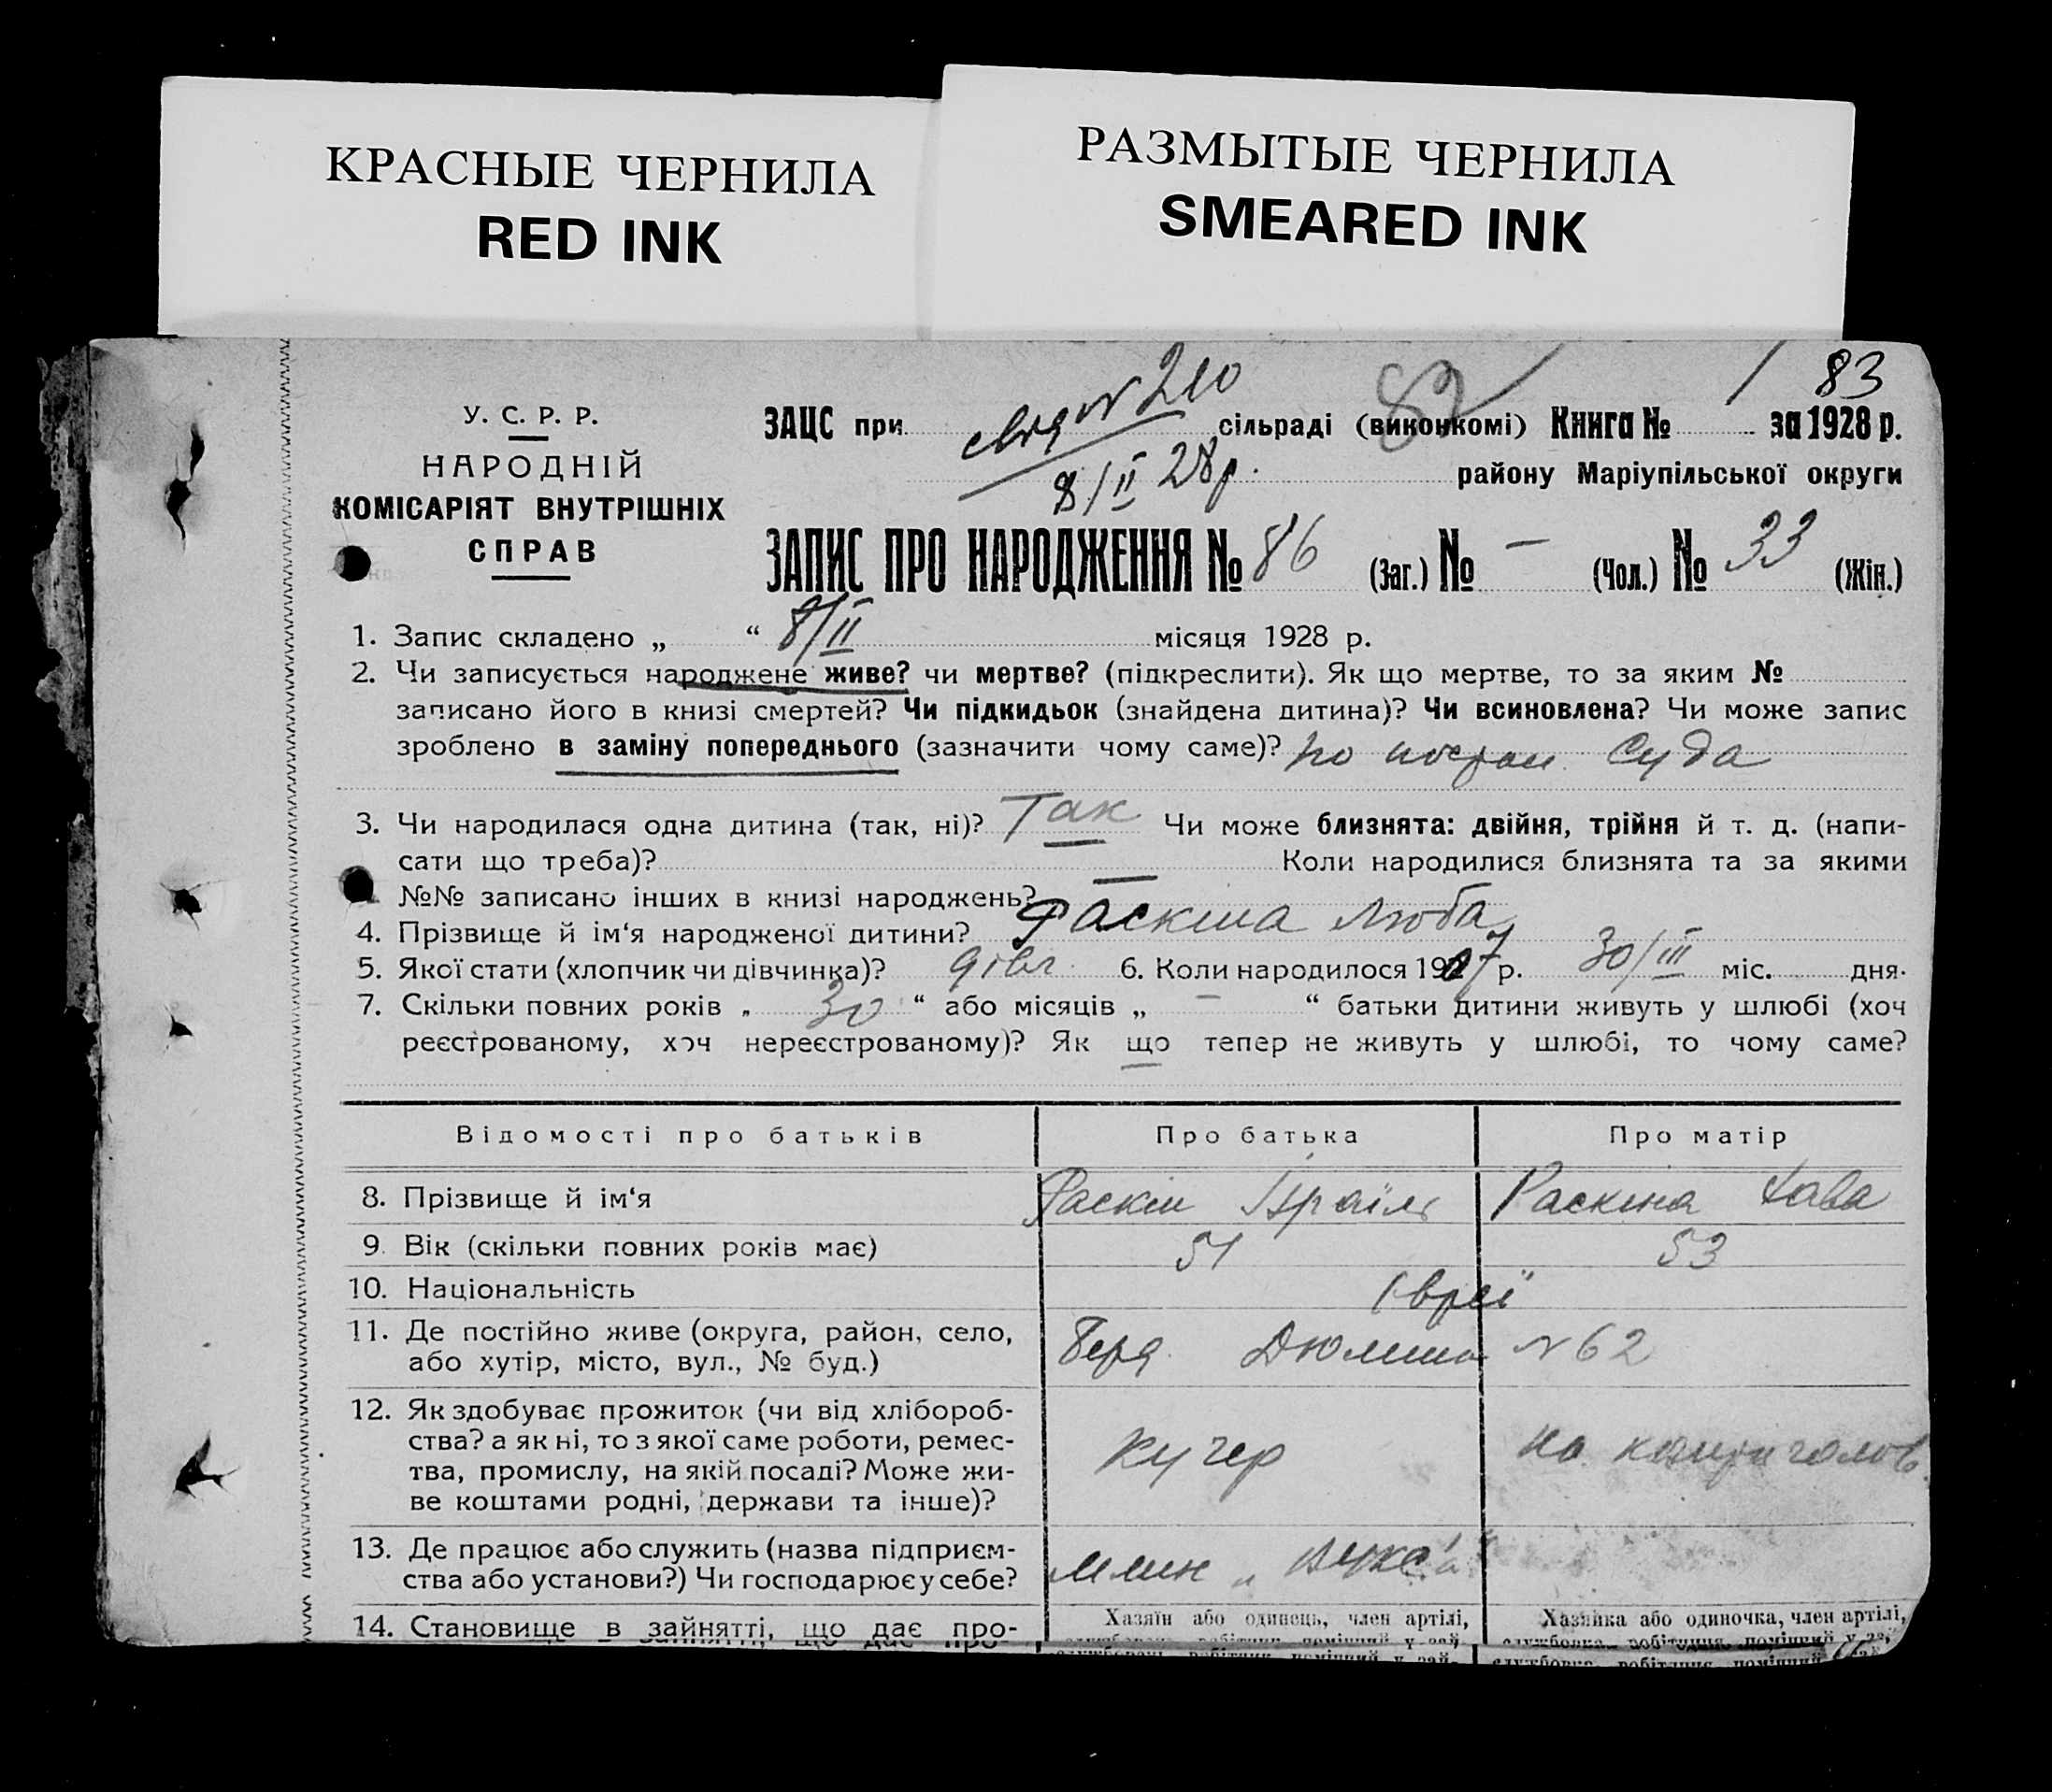 КРАСНЫЕ ЧЕРНИЛА
RED INK
РАЗМЫТЫЕ ЧЕРНИЛА
SMEARED INK
83
82
У. С. Р. Р.
НАРОДНІЙ
КОМІСАРІЯТ ВНУТРІШНІХ
СПРАВ
ЗАЦС при № 210 сільраді (виконкомі) Книга № за 1928 р.
8/II 28 р. району Маріупільської округи
ЗАПИС ПРО НАРОДЖЕННЯ № 86 (Заг.) № — (Чол.) № 33 (Жін.)
1. Запис складено „ “ 8/II місяця 1928 р.
2. Чи записується народжене живе? чи мертве? (підкреслити). Як що мертве, то за яким №
записано його в книзі смертей? Чи підкидьок (знайдена дитина)? Чи всиновлена? Чи може запис
зроблено в заміну попереднього (зазначити чому саме)? по постан. Суда
3. Чи народилася одна дитина (так, ні)? Так Чи може близнята: двійня, трійня й т. д. (напи-
сати що треба)? — Коли народилися близнята та за якими
№№ записано інших в книзі народжень?
4. Прізвище й ім‘я народженої дитини? Раскина Люба
5. Якої стати (хлопчик чи дівчинка)? дівч. 6. Коли народилося 1907 р. 30/III міс. дня.
7. Скільки повних років „ 30 “ або місяців „ — “ батьки дитини живуть у шлюбі (хоч
реєстрованому, хоч нереєстрованому)? Як що тепер не живуть у шлюбі, то чому саме?
Відомості про батьків Про батька Про матір
8. Прізвище й ім‘я Раскин Ізраїль Раскина Хава
9. Вік (скільки повних років має) 51 53
10. Національність Євреї
11. Де постійно живе (округа, район, село,
або хутір, місто, вул., № буд.) Берд. Дюмина №62
12. Як здобуває прожиток (чи від хлібороб-
ства? а як ні, то з якої саме роботи, ремес-
тва, промислу, на якій посаді? Може жи-
ве коштами родні, держави та інше)? Кучер на кошти чолов.
13. Де працює або служить (назва підприєм-
ства або установи?) Чи господарює у себе? Млин
14. Становище в зайнятті, що дає про-
Хазяїн або одинець, член артілі,
Хазяйка або одиночка, член артілі,